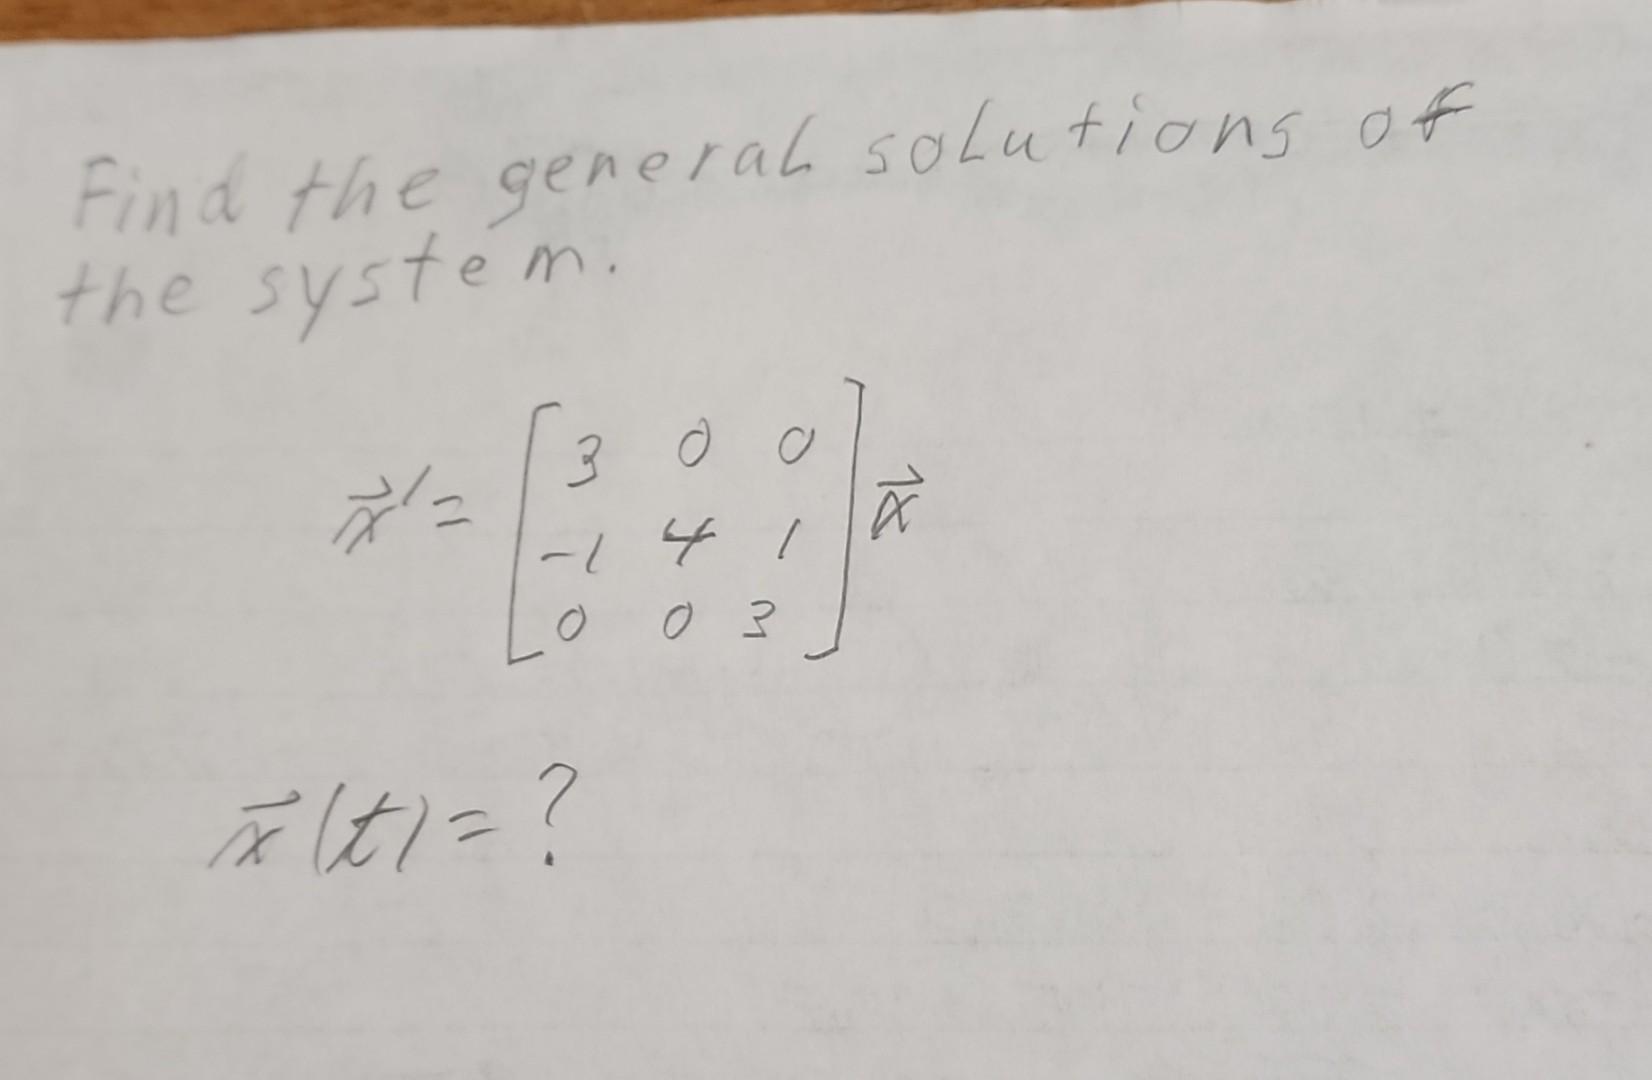 Find the general solutions of
the system.
x⃗' = [3 0 0
-1 4 1
0 0 3] x⃗
x⃗(t) = ?